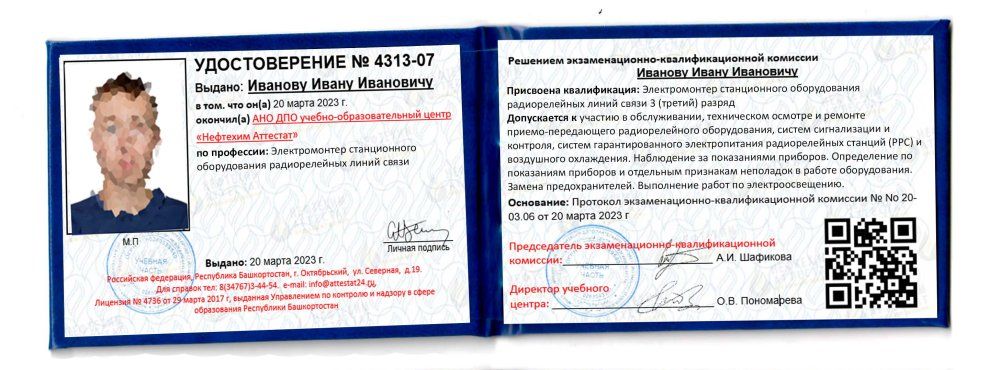 УДОСТОВЕРЕНИЕ № 4313-07
Выдано: Иванову Ивану Ивановичу
в том. что он(а) 20 марта 2023 г.
окончил(а) АНО ДПО учебно-образовательный центр
«Нефтехим Аттестат»
по профессии: Электромонтер станционного
оборудования радиорелейных линий связи
М.П
Личная подпись
УЧЕБНАЯ
ЧАСТЬ
Выдано: 20 марта 2023 г.
Российская федерация, Республика Башкортостан, г. Октябрьский, ул. Северная, д.19.
Для справок тел: 8(34767)3-44-54. e-mail: info@attestat24.ru,
Лицензия № 4736 от 29 марта 2017 г, выданная Управлением по контролю и надзору в сфере
образования Республики Башкортостан
Решением экзаменационно-квалификационной комиссии
Иванову Ивану Ивановичу
Присвоена квалификация: Электромонтер станционного оборудования
радиорелейных линий связи 3 (третий) разряд
Допускается к участию в обслуживании, техническом осмотре и ремонте
приемо-передающего радиорелейного оборудования, систем сигнализации и
контроля, систем гарантированного электропитания радиорелейных станций (РРС) и
воздушного охлаждения. Наблюдение за показаниями приборов. Определение по
показаниям приборов и отдельным признакам неполадок в работе оборудования.
Замена предохранителей. Выполнение работ по электроосвещению.
Основание: Протокол экзаменационно-квалификационной комиссии № No 20-
03.06 от 20 марта 2023 г
Председатель экзаменационно-квалификационной
комиссии: А.И. Шафикова
УЧЕБНАЯ
ЧАСТЬ
Директор учебного
центра: О.В. Пономарева